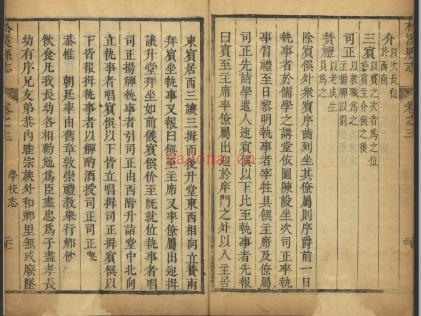 介 以次長
位於西南
三賓 以賓之次者爲之
位於賓介之後
司正 以敎職爲之
主揚觶以罰
贊禮者 以老成生
員爲之
賓僎外衆賓序齒列坐其僚屬則序爵前一日
執事者於儒學之講堂依圖陳設坐次司正率執
事習禮至日黎明執事者宰牲具饌主席及僚屬
司正先詣學遣人速賓僎以下比至執事者先報
曰賓至主席率僚屬出迎於庠門之外以入主居
縣志 卷之三
東賓居西三讓三揖而後升堂東西相向立贊兩
拜賓坐執事又報曰僎至主席又率僚屬出迎揖
讓升堂拜坐如前儀賓僎介至旣就位執事者唱
司正揚觶執事者引司正由西階升詣堂中北向
立執事者唱賓僎以下皆立唱揖司正揖賓僎以
下皆報揖執事者以觶酌酒授司正司正
恭惟 朝廷率由舊章敦崇禮敎舉行鄉
飲食凡我長幼各相勸勉爲臣盡忠爲子盡孝長
幼有序兄友弟恭內睦宗族外和鄉里無或廢墜
縣志 卷之三 學校志